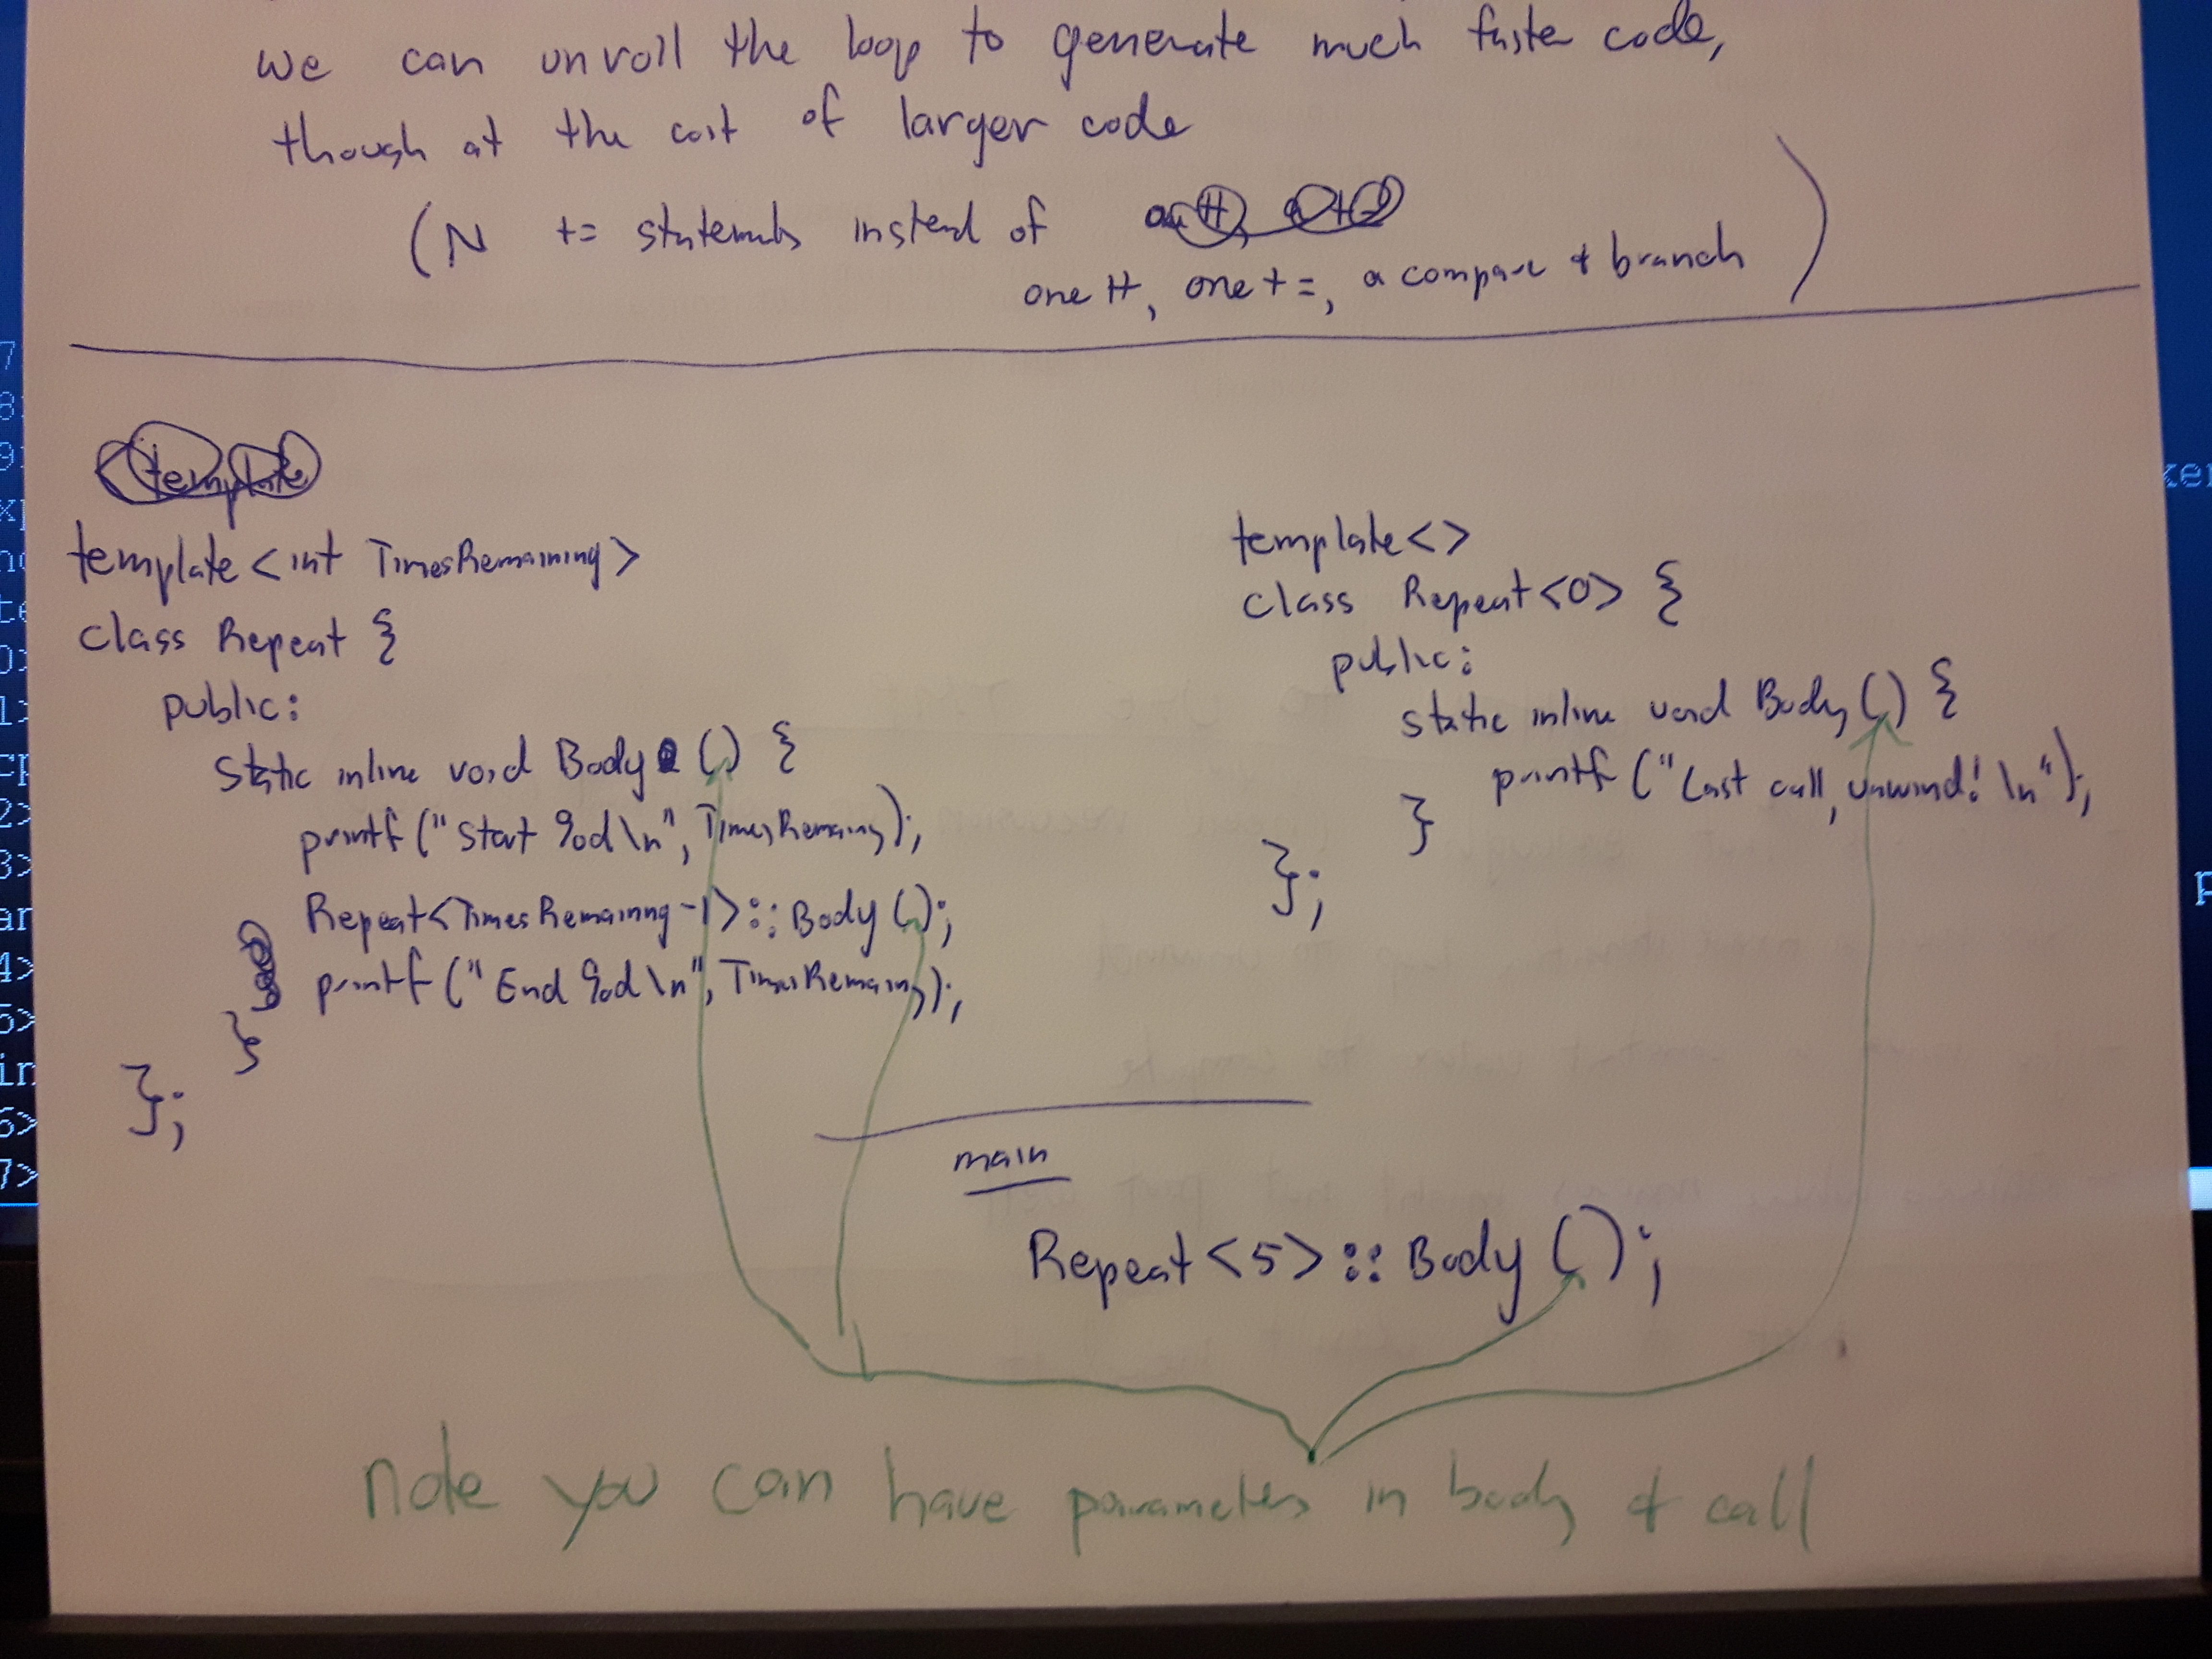 we can unroll the loop to generate much faster code,
though at the cost of larger code
(N += statements instead of
one ++, one +=, a compare & branch)
template
template <int TimesRemaining>
class Repeat {
public:
static inline void Body () {
printf ("Start %d\n", TimesRemaining);
Repeat<TimesRemaining-1>::Body ();
printf ("End %d\n", TimesRemaining);
}
};
template<>
class Repeat<0> {
public:
static inline void Body () {
printf ("Last call, unwind! \n");
}
};
main
Repeat<5>::Body ();
note you can have parameters in body & call